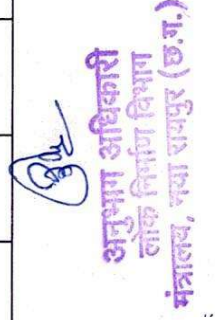 अनुभाग अधिकारी
लोक निर्माण विभाग
मंत्रालय, नवा रायपुर (छ.ग.)